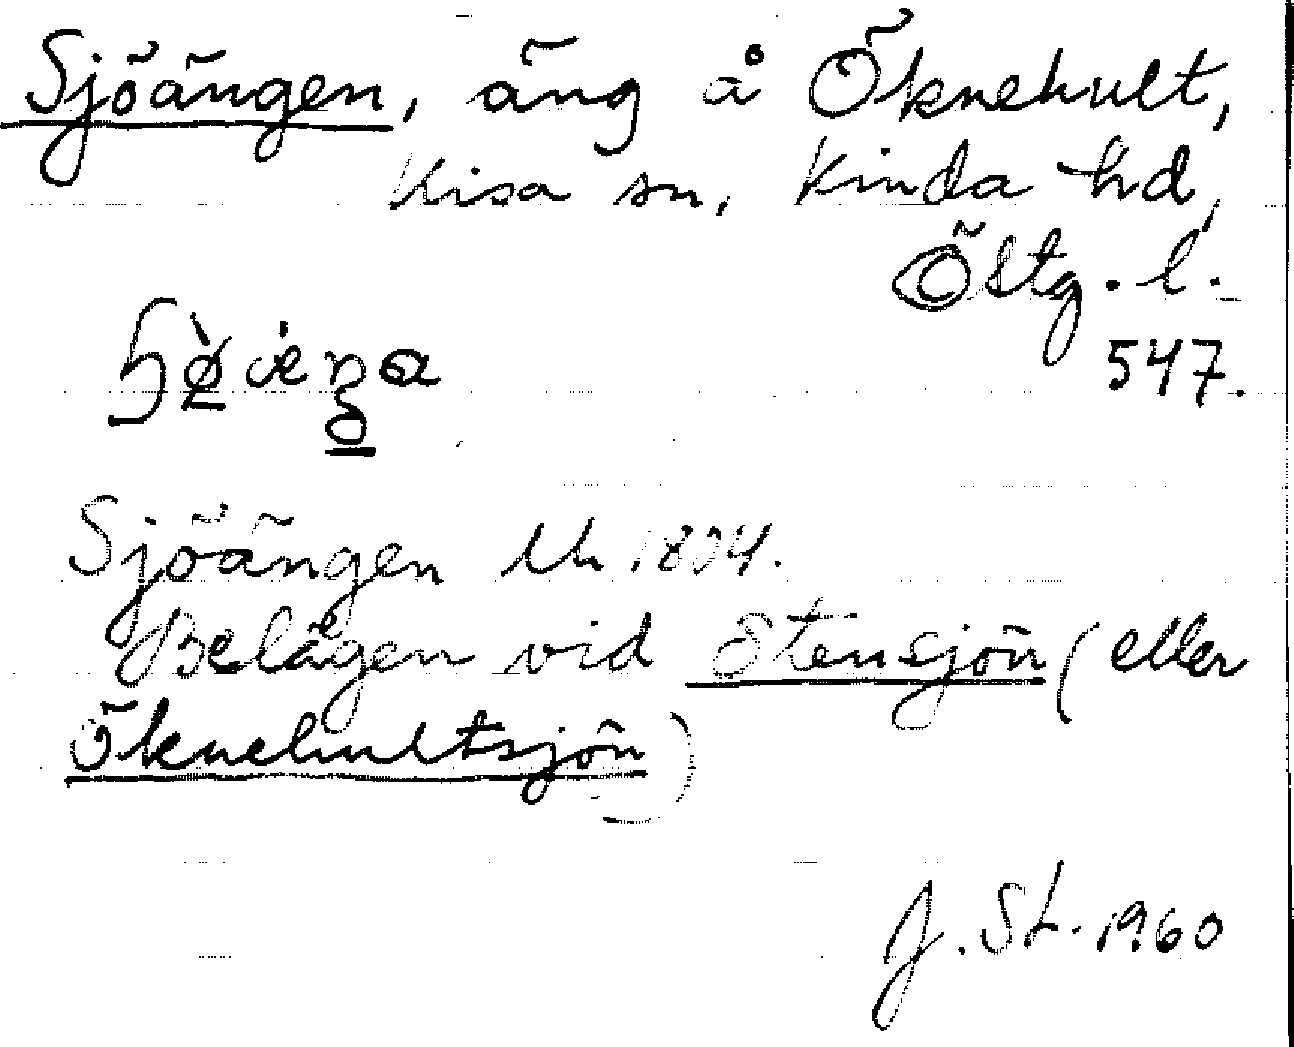 Sjöängen, äng å Öknehult,
Kisa sn, Kinda hd,
Östg. l.
547.
Sjöängen Uh 1804.
Belägen vid Stensjön (eller
Öknehultsjön)
J. St. 1960